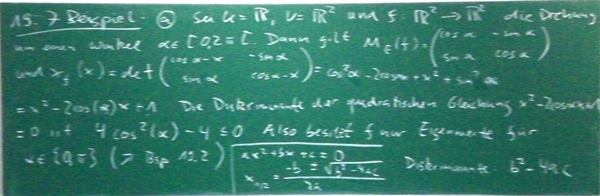 19.7 Beispiel: ⓐ Sei K = ℝ, V = ℝ² und f: ℝ² → ℝ² die Drehung
um einen Winkel α ∈ [0,2π[. Dann gilt M_E(f) = (cos α  -sin α / sin α  cos α)
und χ_f(x) = det (cos α - x  -sin α / sin α  cos α - x) = cos²α - 2cosαx + x² + sin²α
= x² - 2cos(α)x + 1 Die Diskriminante der quadratischen Gleichung x² - 2cosαx+1
= 0 ist 4cos²(α) - 4 ≤ 0 Also besitzt f nur Eigenwerte für
α ∈ {0,π} (↗ Bsp 19.2)
ax² + bx + c = 0
x_{1/2} = (-b ± √(b² - 4ac)) / 2a
Diskriminante: b² - 4ac